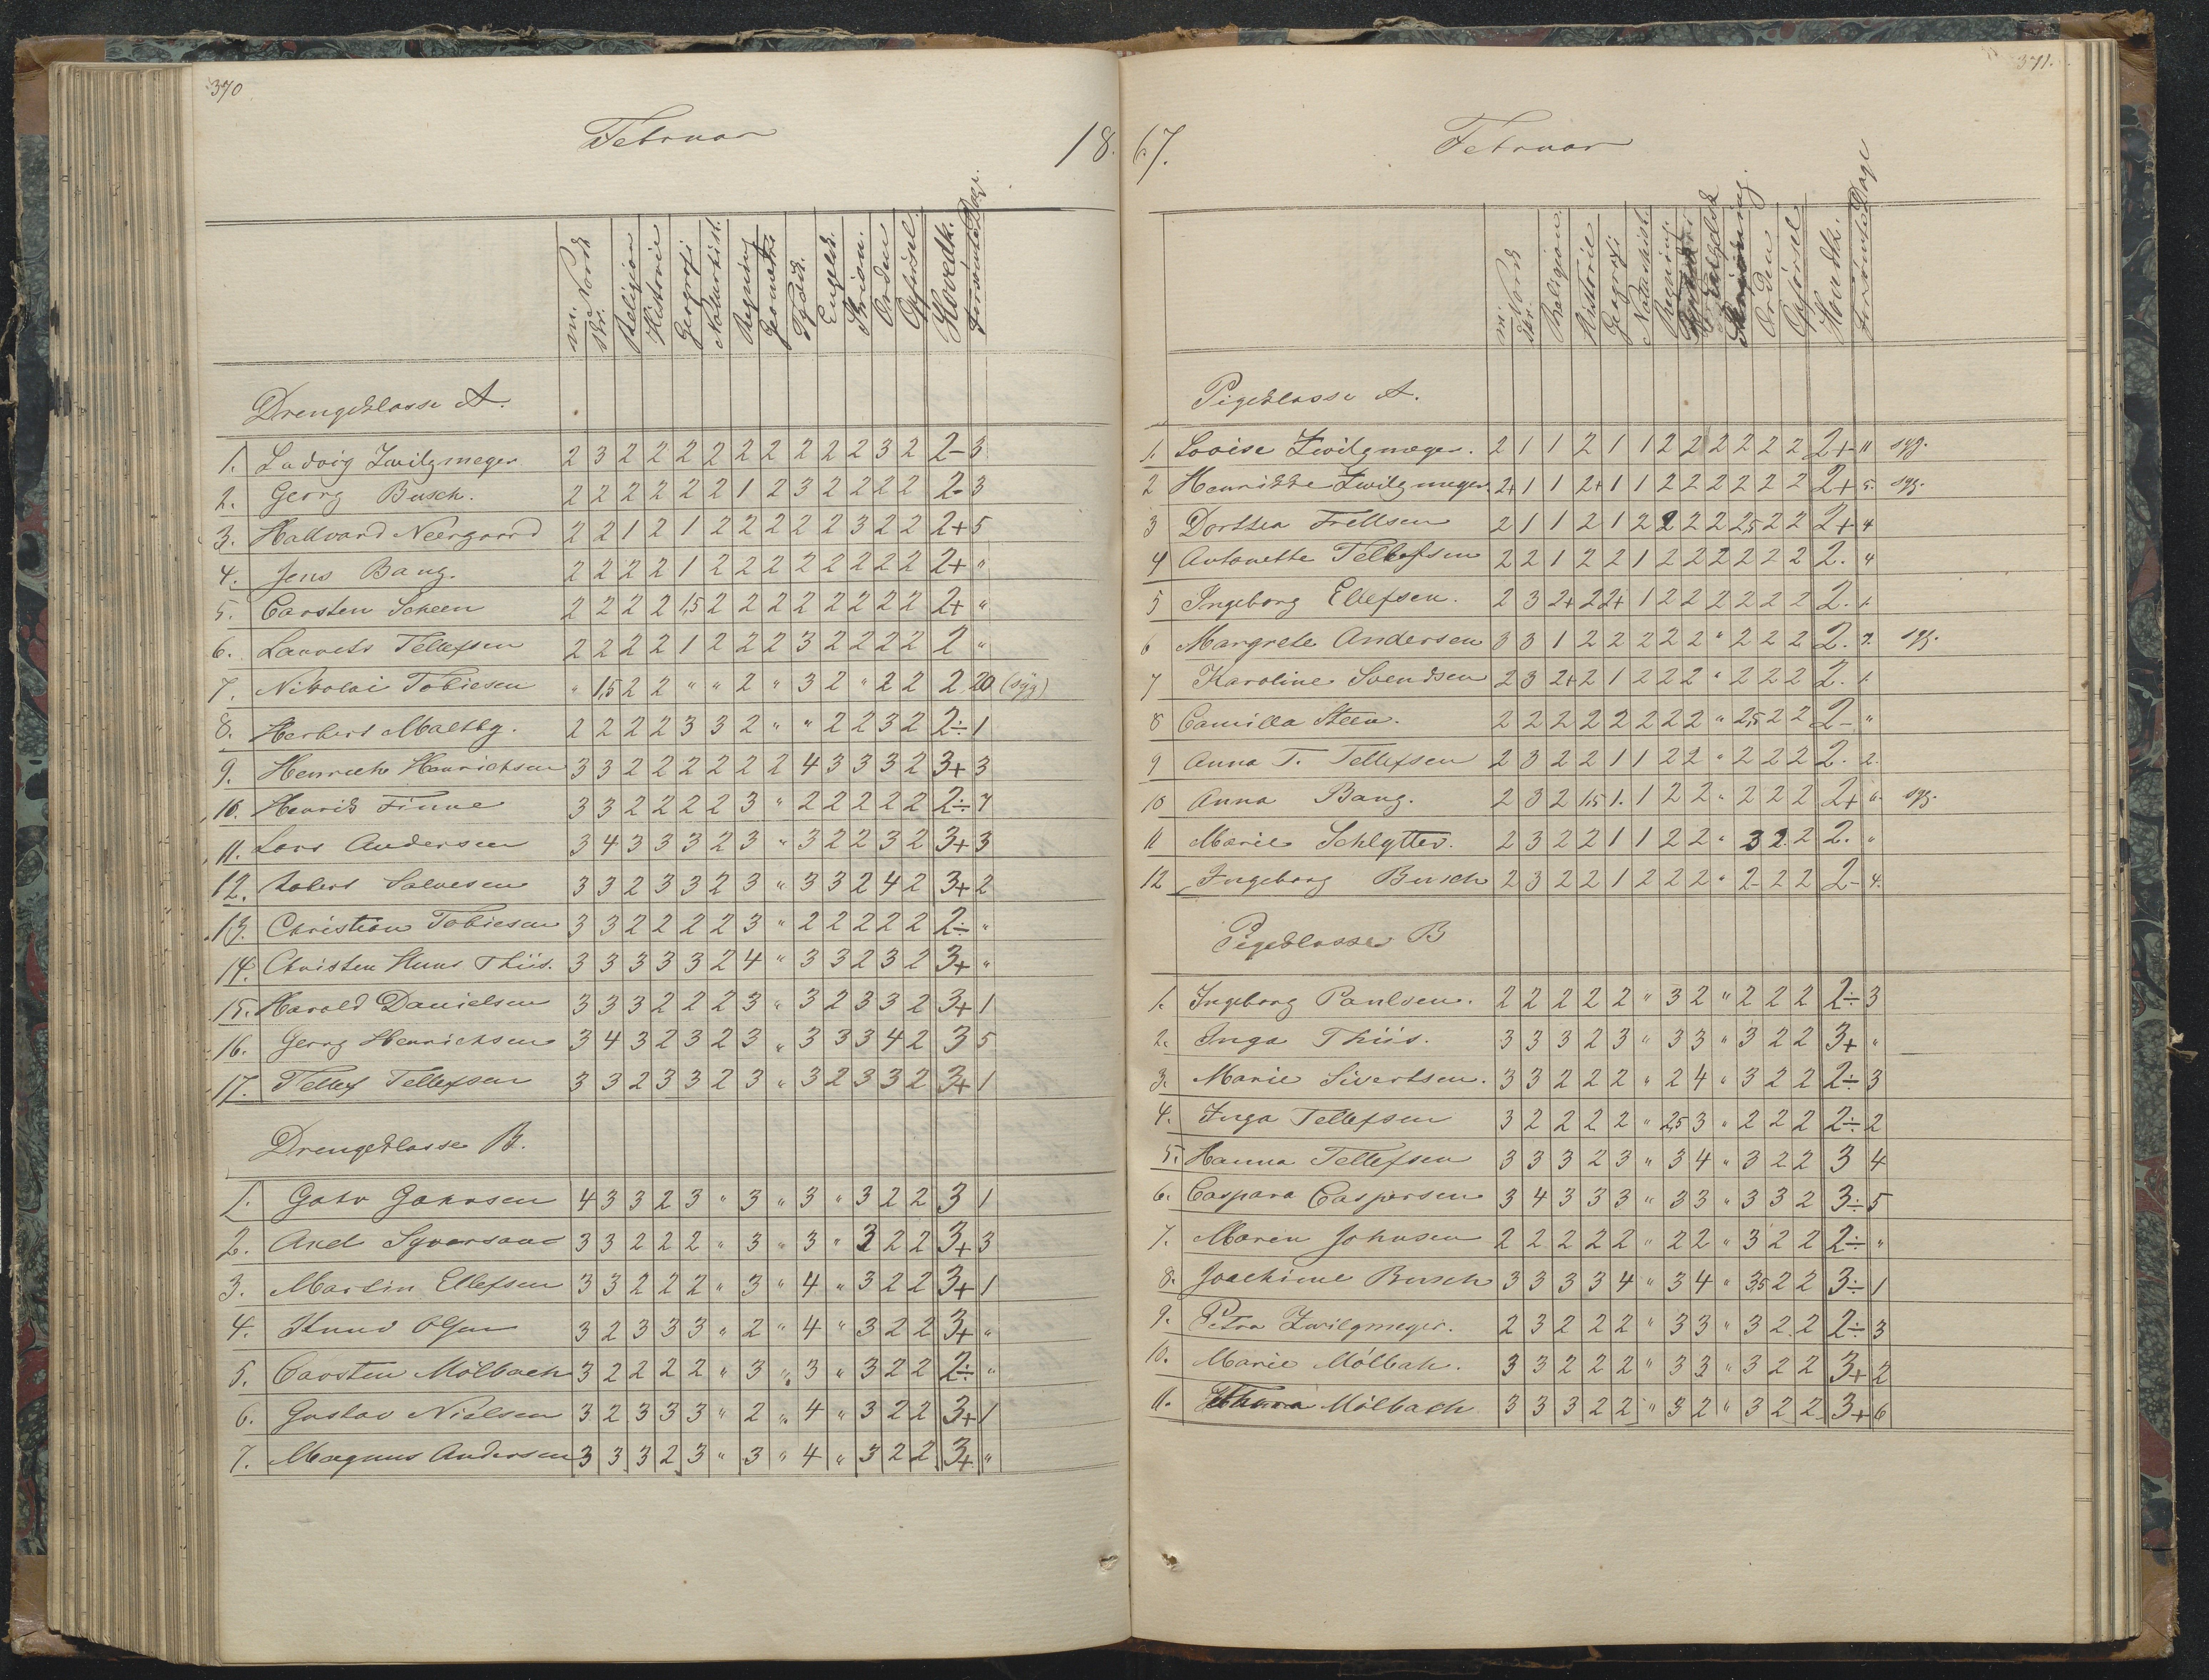 370
Februar 18
m. Norsk
skr.
Religion
Historie
Geografi
Naturhist.
Regning
Geometri
Tydsk.
Engelsk.
Skrivn.
Orden
Opførsel.
Hovedk.
Forsømte Dage.
Drengeklasse A.
1. Ludvig Zwilgmeyer 2 3 2 2 2 2 2 2 2 2 2 3 2 2- 3
2. Georg Busch. 2 2 2 2 2 2 1 2 3 2 2 2 2 2- 3
3. Hallvard Neergaard 2 2 1 2 1 2 2 2 2 2 3 2 2 2+ 5
4. Jens Bang. 2 2 2 2 1 2 2 2 2 2 2 2 2 2+ "
5. Carsten Scheen 2 2 2 2 1,5 2 2 2 2 2 2 2 2 2+ "
6. Laurets Tellefsen 2 2 2 2 1 2 2 2 3 2 2 2 2 2 "
7. Nikolai Tobiesen " 1,5 2 2 " " 2 " 3 2 " 2 2 2 20 (syg)
8. Herbert Maltby. 2 2 2 2 3 3 2 " " 2 2 3 2 2÷ 1
9. Henrich Henrichsen 3 3 2 2 2 2 2 2 4 3 3 3 2 3+ 3
10. Henrik Finne 3 3 2 2 2 2 3 " 2 2 2 2 2 2÷ 7
11. Lars Andersen 3 4 3 3 3 2 3 " 3 2 2 3 2 3+ 3
12. Robert Salvesen 3 3 2 3 3 2 3 " 3 3 2 4 2 3+ 2
13. Christian Tobiesen 3 3 2 2 2 2 3 " 2 2 2 2 2 2÷ "
14. Christen Huus Thiis. 3 3 3 3 3 2 4 " 3 3 2 3 2 3+ "
15. Harald Danielsen 3 3 3 2 2 2 3 " 3 2 3 3 2 3+ 1
16. Georg Henrichsen 3 4 3 2 3 2 3 " 3 3 3 4 2 3 5
17. Tellef Tellefsen 3 3 2 3 3 2 3 " 3 2 3 3 2 3+ 1
Drengeklasse B.
1. 4 3 3 2 3 " 3 " 3 " 3 2 2 3 1
2. 3 3 2 2 2 " 3 " 3 " 3 2 2 3+ 3
3. Martin Ellefsen 3 3 2 2 2 " 3 " 4 " 3 2 2 3+ 1
4. Knud Olsen 3 2 3 3 3 " 2 " 4 " 3 2 2 3+ "
5. Carsten Mölbach 3 2 2 2 2 " 3 " 3 " 3 2 2 2÷ "
6. Gustav Nielsen 3 2 3 3 3 " 2 " 4 " 3 2 2 3+ 1
7. Magnus Andersen 3 3 3 2 3 " 3 " 4 " 3 2 2 3+ "
371.
67. Februar
m. Norsk
skr.
Religion.
Historie
Geografi
Naturhist.
Regning.
Engelsk
Orden
Opførsel
Hovedk.
Forsømte Dage
Pigeklasse A.
1. Lovise Zwilgmeyer. 2 1 1 2 1 1 2 2 2 2 2 2 2+ 11 syg.
2 Henrikke Zwilgmeyer. 2+ 1 1 2+ 1 1 2 2 2 2 2 2 2+ 5. syg.
3 Dorthea Frellsen 2 1 1 2 1 2 2 2 2 2,5 2 2 2+ 4
4 Antonette Tellefsen 2 2 1 2 2 1 2 2 2 2 2 2 2. 4
5 Ingeborg Ellefsen. 2 3 2+ 2 2+ 1 2 2 2 2 2 2 2. 1.
6 Margrete Andersen 3 3 1 2 2 2 2 2 " 2 2 2 2. 7. syg.
7 Karoline Svendsen 2 3 2+ 2 1 2 2 2 " 2 2 2 2. 1.
8 Camilla Steen. 2 2 2 2 2 2 2 2 " 2,5 2 2 2- "
9 Anna T. Tellefsen 2 3 2 2 1 1 2 2 " 2 2 2 2. 2.
10 Anna Bang. 2 3 2 1,5 1. 1 2 2 " 2 2 2 2+ 6. syg.
11 Marie Schlytter. 2 3 2 2 1 1 2 2 " 3 2. 2 2. "
12 Ingeborg Busch 2 3 2 2 1 2 2 2 " 2- 2 2 2- 4.
Pigeklasse B
1. Ingeborg Paulsen. 2 2 2 2 2 " 3 2 " 2 2 2 2÷ 3
2. Inga Thiis. 3 3 3 2 3 " 3 3 " 3 2 2 3+ "
3. Marie Sivertsen. 3 3 2 2 2 " 2 4 " 3 2 2 2÷ 3
4. Inga Tellefsen 3 2 2 2 2 " 2,5 3 " 2 2 2 2÷ 2
5. Hanna Tellefsen 3 3 3 2 3 " 3 4 " 3 2 2 3 4
6. Caspara Caspersen 3 4 3 3 3 " 3 3 " 3 3 2 3÷ 5
7. Maren Johnsen 2 2 2 2 2 " 2 2 " 3 2 2 2÷ "
8. Joachime Busch 3 3 3 3 4 " 3 4 " 3,5 2 2 3÷ 1
9. Petra Zwilgmeyer. 2 3 2 2 2 " 3 3 " 3 2 2 2÷ 3
10. Marie Mölbak. 3 3 2 2 2 " 3 3 " 3 2 2 3+ 2
11. Mölbach 3 3 3 2 2 " 3 2 " 3 2 2 3+ 6